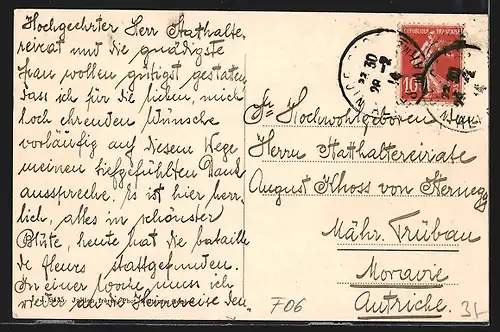 Hochgeehrter Herr Statthalte,
reirat und die gnädigste
Frau wollen gütigst gestaten,
dass ich für die lieben, mich
hoch ehrenden Wünsche
vorläufig auf diesem Wege
meinen tiefgefühlten Dank
ausspreche. Es ist hier herr,
lich, alles in schönster
Blüte, heute hat die bataille
de fleurs stattgefunden.
In einer Woche muss ich
wieder an die Heimreise den
REPUBLIQUE FRANÇAISE
10
Sr. Hochwohlgeboren
Herrn Statthaltereirate
August Khoss von Sternegg
Mähr. Trübau
Moravie
Autriche.
F06